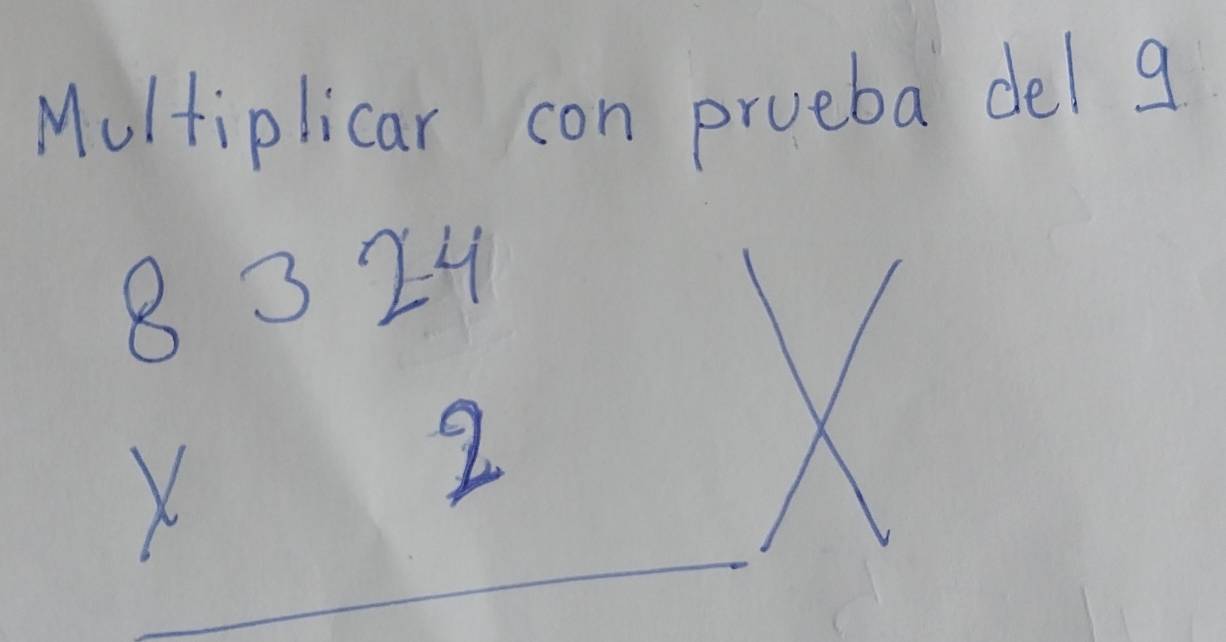 Multiplicar con prueba del 9
8 3 24
x 2